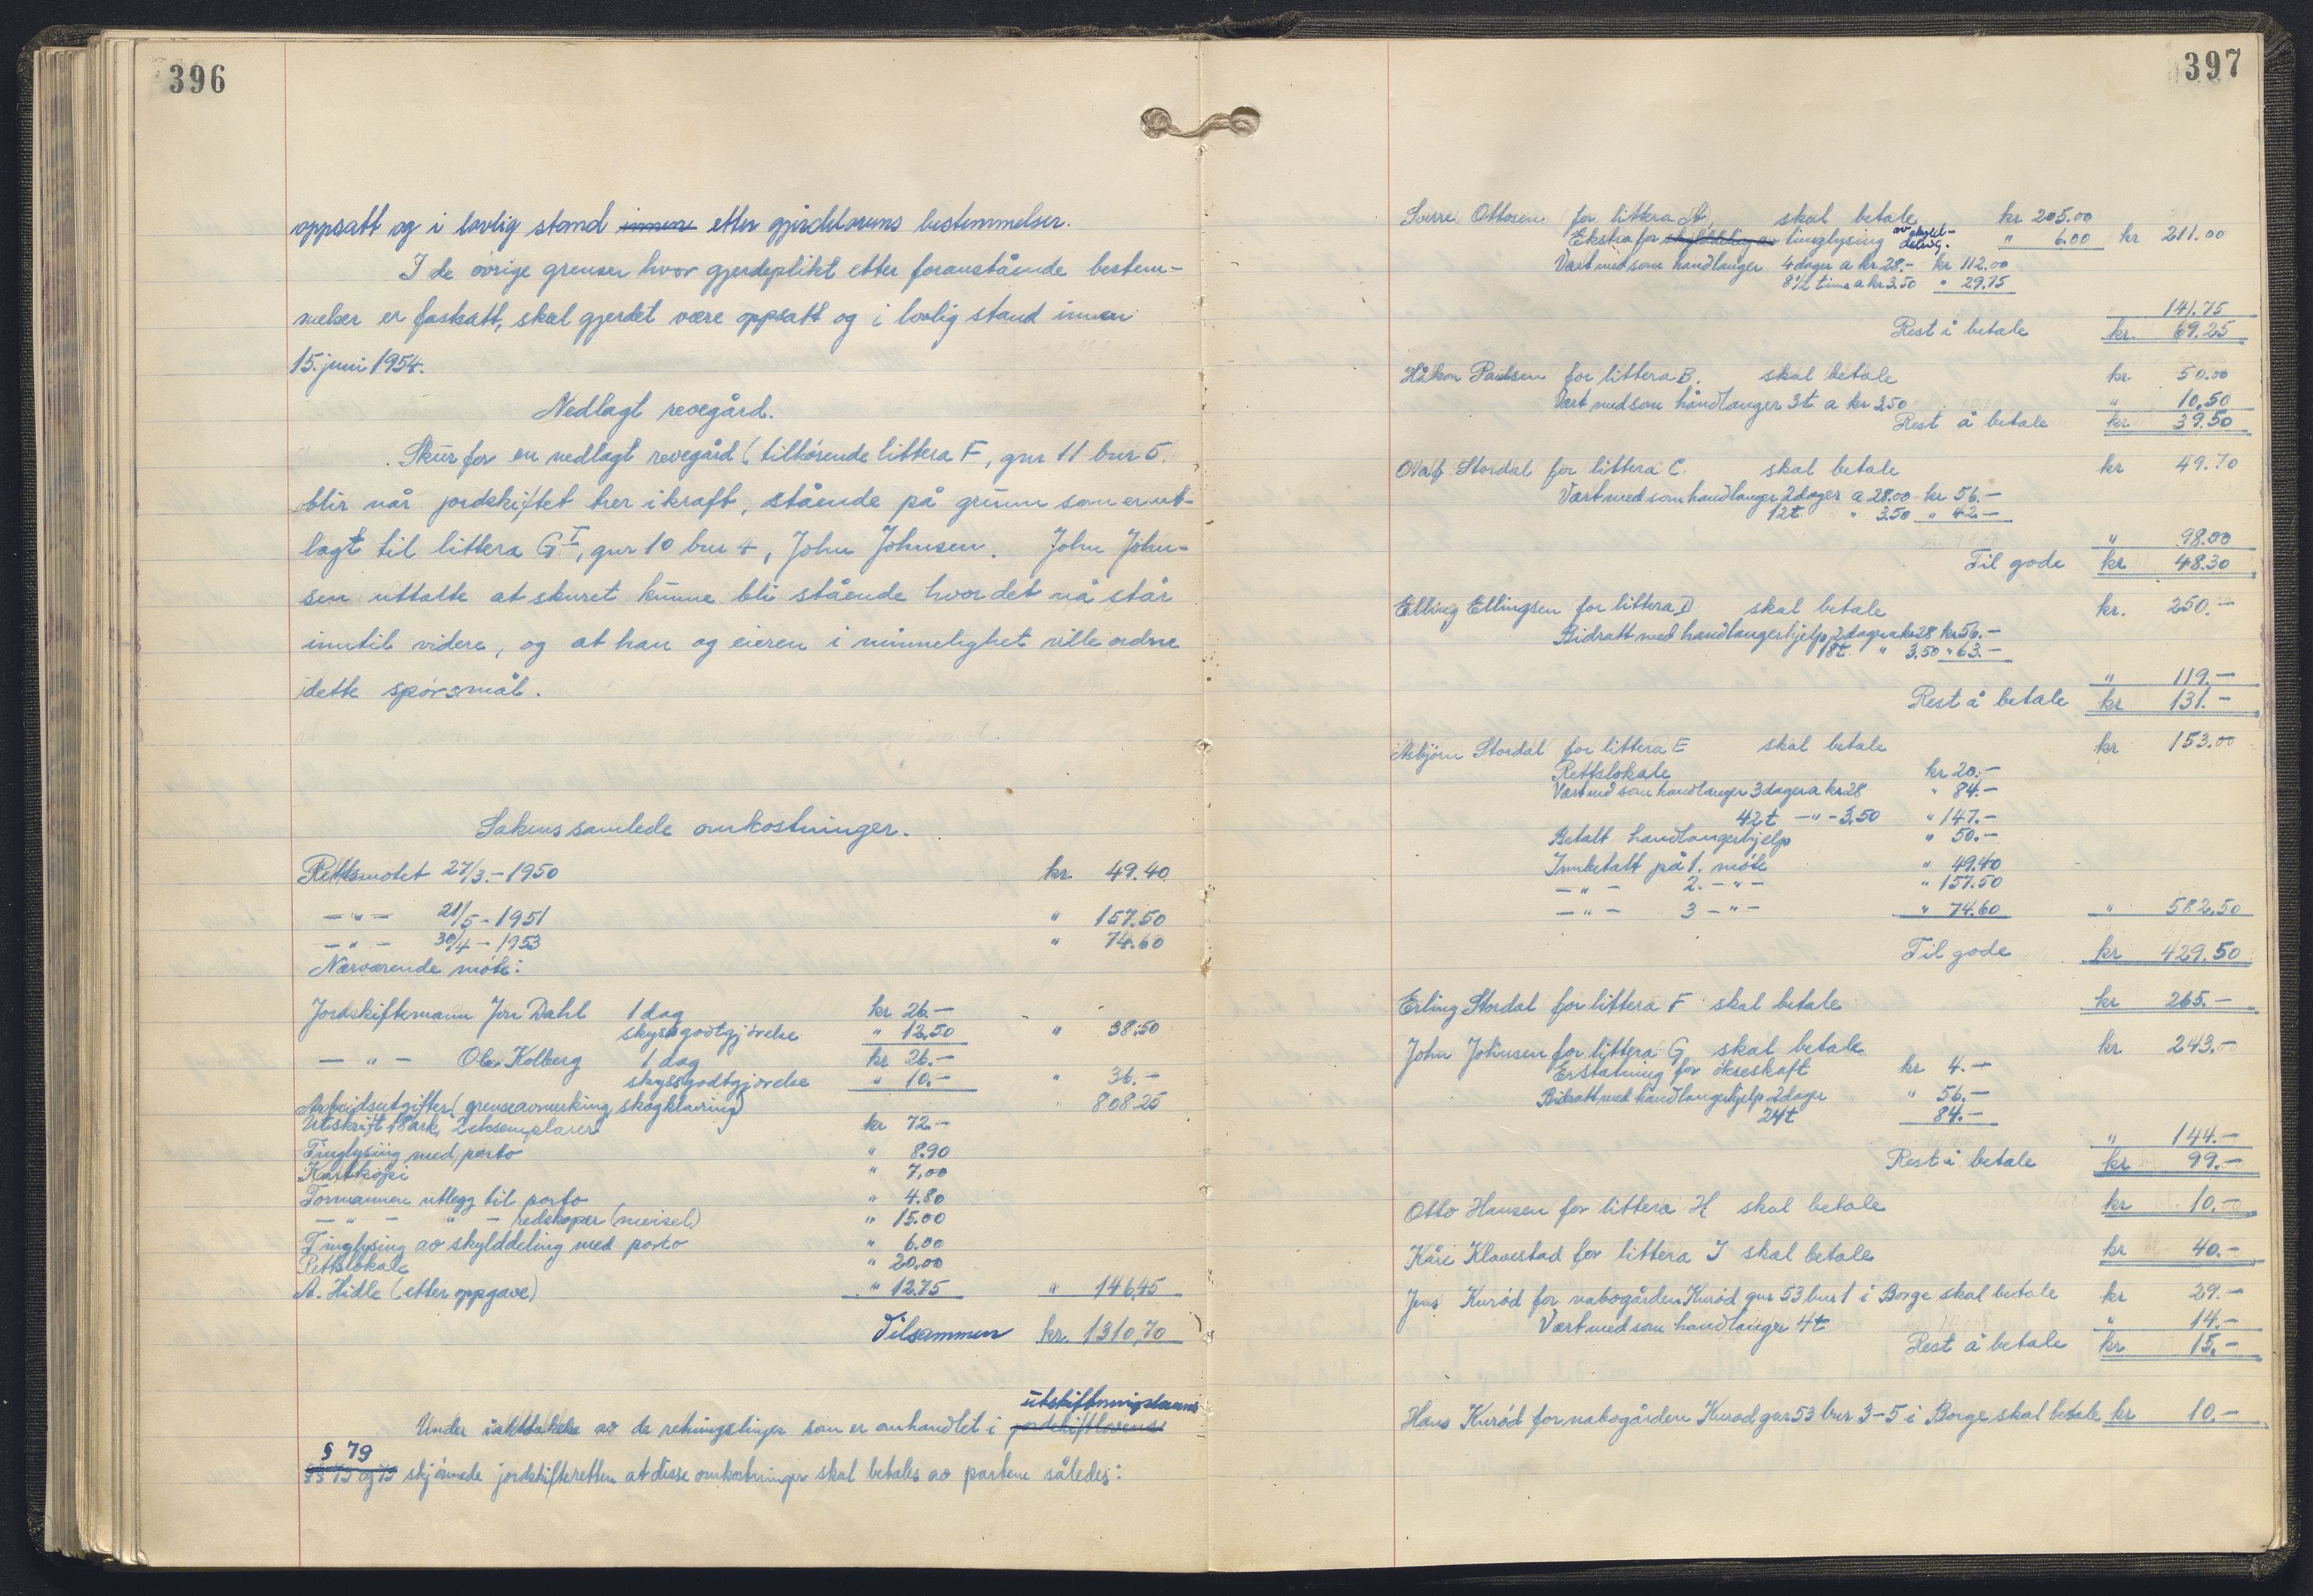 396
oppsatt og i lovlig stand innen etter gjerdelovens bestemmelser.
I de øvrige grenser hvor gjerdeplikt etter foranstående bestem-
melser er fastsatt, skal gjerdet være oppsatt og i lovlig stand innen
15. juni 1954.
Nedlagt revegård.
Skur for en nedlagt revegård (tilhørende littera F, gnr 11 bnr 5
blir når jordskiftet trer i kraft, stående på grunn som er ut-
lagt til littera G I, gnr 10 bnr 4, John Johnsen. John John-
sen uttalte at skuret kunne bli stående hvor det nå står
inntil videre, og at han og eieren i minnelighet ville ordne
dette spørsmål.
Sakens samlede omkostninger.
Rettsmøtet 27/3.-1950 kr. 49.40
- " - 21/5-1951 " 157.50
- " - 30/4-1953 " 74.60
Nærværende møte:
Jordskiftemann Jon Dahl 1 dag kr. 26.-
skyssgodtgjørelse " 12,50 " 38.50
- " - Ole Kolberg 1 dag kr 26.-
skyssgodtgjørelse " 10.- " 36.-
Arbeidsutgifter (grenseavmerking, skogklaving) " 808.25
Utskrift 18 ark, 2 eksemplarer kr 72.-
Tinglysing med porto " 8.90
Kartkopi " 7,00
Formannen utlegg til porto " 4.80
- " - " - redskaper (meisel) " 15.00
Tinglysing av skylddeling med porto " 6.00
Rettslokale " 20,00
A. Hidle (etter oppgave) " 12.75 " 146,45
Tilsammen kr. 1310,70
utskiftningslovens
Under iakttakelse av de retningslinjer som er omhandlet i jordskiftlovens
§ 79
§§ 73 og 75 skjønnede jordskifteretten at disse omkostninger skal betales av partene således:
397
Sverre Ottosen for littera A, skal betale kr 205.00
Ekstra for skylddeling av tinglysing av skyld-
deling. " 6.00 kr 211.00
Vært med som håndlanger 4 dager a kr 28.- kr 112.00
8 1/2 time a kr 3.50 " 29.75
141.75
Rest å betale kr. 69.25
Håkon Paulsen for littera B. skal betale kr. 50.00
Vært med som håndlanger 3t a kr 3,50 " 10,50
Rest å betale kr. 39.50
Olaf Stordal for littera C. skal betale kr 49.70
Vært med som handlanger 2 dager a 28.00 kr 56.-
12t " 3.50 " 42.-
" 98.00
Til gode kr 48.30
Elling Ellingsen for littera D skal betale kr. 250.-
Bidratt med handlangerhjelp 2 dager a kr 28 kr 56.-
18t " 3.50 " 63.-
" 119.-
Rest å betale kr 131.-
Asbjørn Stordal for littera E skal betale kr 153.00
Rettslokale kr 20.-
Vært med som handlanger 3 dager a kr 28 " 84.-
42t - " - 3,50 " 147.-
Betalt handlangerhjelp " 50.-
Innbetalt på 1. møte " 49.40
- " - 2. - " - " 157.50
- " - 3 - " - " 74.60 " 582,50
Til gode kr 429.50
Erling Stordal for littera F skal betale kr 265.-
John Johnsen for littera G skal betale kr. 243.00
Erstatning for økseskaft kr 4.-
Bidratt med håndlangerhjelp 2 dager " 56.-
24t 84.-
" 144.-
Rest å betale kr 99.-
Otto Hansen for littera H skal betale kr 10.-
Kåre Klavestad for littera I skal betale kr 40.-
Jens Kurød for nabogården Kurød gnr 53 bnr 1 i Borge skal betale kr 29.-
Vært med som handlanger 4t " 14.-
Rest å betale kr 15.-
Hans Kurød for nabogården Kurød gnr 53 bnr 3-5 i Borge skal betale kr 10.-